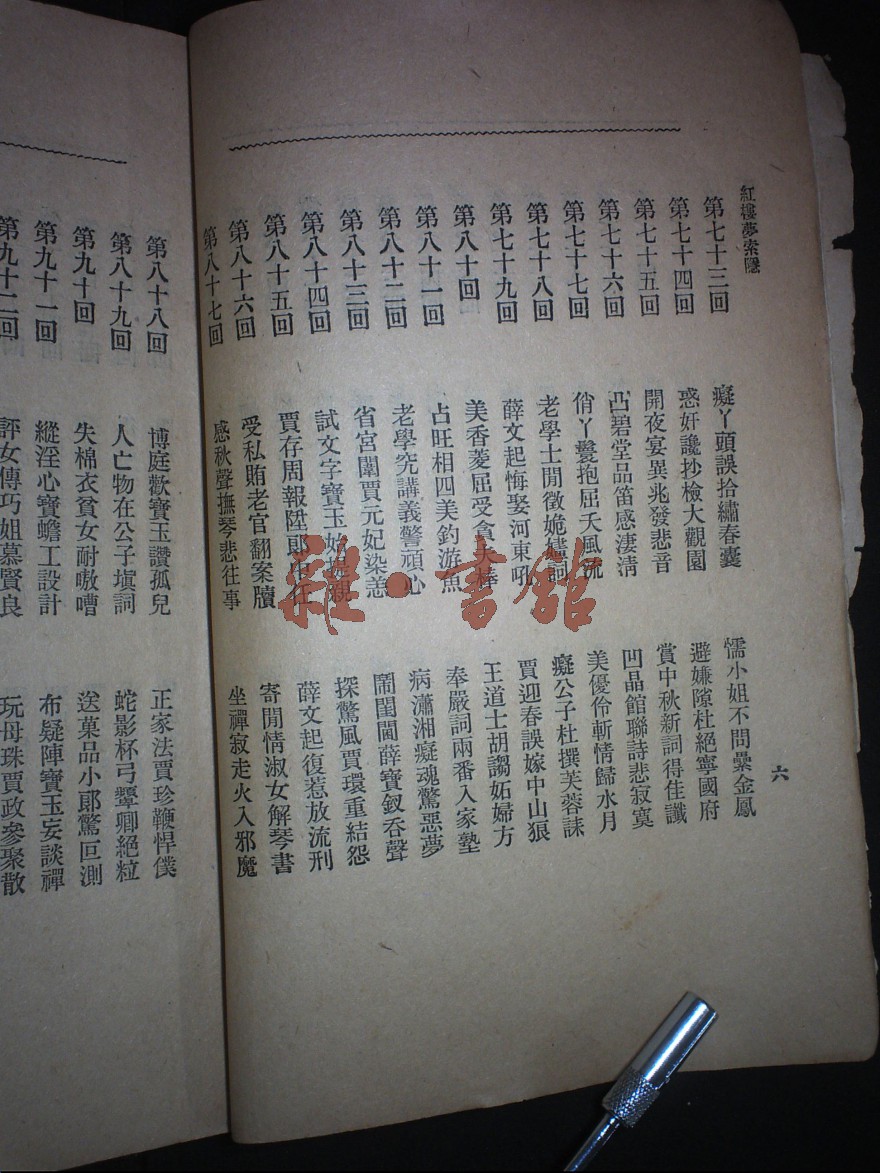 紅樓夢索隱
六
第七十三回 癡丫頭誤拾繡春囊 懦小姐不問纍金鳳
第七十四回 惑奸讒抄檢大觀園 避嫌隙杜絕寧國府
第七十五回 開夜宴異兆發悲音 賞中秋新詞得佳讖
第七十六回 凸碧堂品笛感淒淸 凹晶館聯詩悲寂寞
第七十七回 俏丫鬟抱屈夭風流 美優伶斬情歸水月
第七十八回 老學士閒徵姽嫿詞 癡公子杜撰芙蓉誄
第七十九回 薛文起悔娶河東吼 賈迎春誤嫁中山狼
第八十回 美香菱屈受貪夫棒 王道士胡謅妬婦方
第八十一回 占旺相四美釣游魚 奉嚴詞兩番入家塾
第八十二回 老學究講義警頑心 病瀟湘癡魂驚惡夢
第八十三回 省宮闈賈元妃染恙 鬧閨閫薛寶釵吞聲
第八十四回 試文字寶玉始提親 探驚風賈環重結怨
第八十五回 賈存周報陞郞中任 薛文起復惹放流刑
第八十六回 受私賄老官翻案牘 寄閒情淑女解琴書
第八十七回 感秋聲撫琴悲往事 坐禪寂走火入邪魔
第八十八回 博庭歡寶玉讚孤兒 正家法賈珍鞭悍僕
第八十九回 人亡物在公子塡詞 蛇影杯弓顰卿絕粒
第九十回 失棉衣貧女耐嗷嘈 送菓品小郞驚叵測
第九十一回 縱淫心寶蟾工設計 布疑陣寶玉妄談禪
第九十二回 評女傳巧姐慕賢良 玩母珠賈政參聚散
雜·書館